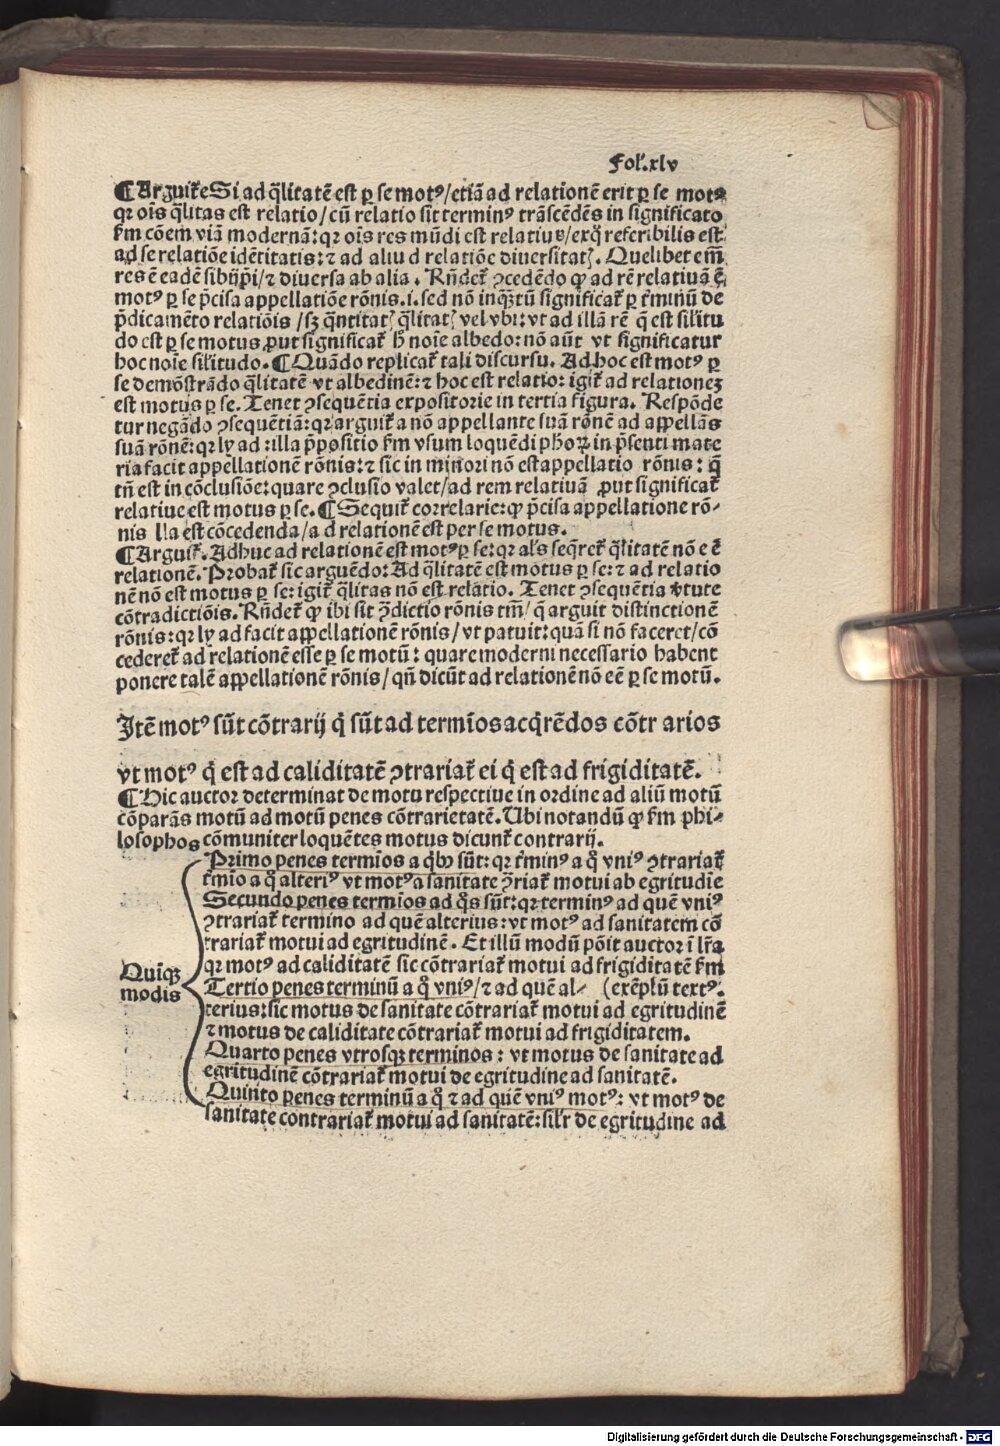 Fol'.xlv
¶ Arguit͛e Si ad q̄litatē est ꝑ se motꝰ/etiā ad relationē erit ꝑ se motꝰ
qꝛ oīs q̄litas est relatio/cū relatio sit terminꝰ trāscēdēs in significato
fm̄ cōem viā modernā:qꝛ oīs res mūdi est relatiua/ex quo referibilis est
ad se relatiōe idētitatis:⁊ ad aliud relatiōe diuersitatꝭ. Quelibet em̄
res ē eadē sibijp̄i/⁊ diuersa ab alia. Rn̄det͛ ꝯcedēdo ꝙ ad rē relatiuā ē
motꝰ ꝑ se p̄cisa appellatiōe rōnis.i.sed nō inqꝫtū significat͛ ꝑ t͛minū de
p̄dicamēto relatiōis/sꝫ q̄ntitatꝭ q̄litatꝭ vel vbi:vt ad illā rē q̄ est sil'itu
do est ꝑ se motus ꝓut significat͛ h̄ noīe albedo:nō aūt vt significatur
hoc noīe sil'itudo. ¶ Quādo replicat͛ tali discursu. Ad hoc est motꝰ ꝑ
se demōstrādo q̄litatē vt albedinē:⁊ hoc est relatio:igit͛ ad relationeꝫ
est motus ꝑ se. Tenet ꝯsequētia expositorie in tertia figura. Respōde
tur negādo ꝯsequētiā:qꝛ arguit͛ a nō appellante suā rōnē ad appellās
suā rōnē:qꝛ ly ad:illa p̄positio fm̄ vsum loquēdi phoꝝ in p̄senti mate
ria facit appellationē rōnis:⁊ sic in minori nō est appellatio rōnis: q̄
tn̄ est in cōclusiōe:quare ꝯclusio valet/ad rem relatiuā ꝓut significat͛
relatiue est motus ꝑ se. ¶ Sequit͛ correlarie:ꝙ p̄cisa appellatione rō-
nis illa est cōcedenda/ad relationē est per se motus.
¶ Arguit͛. Adhuc ad relationē est motꝰ ꝑ se:qꝛ al's seq̄ret͛ q̄litatē nō eē
relationē. Probat͛ sic arguēdo:Ad q̄litatē est motus ꝑ se:⁊ ad relatio
nē nō est motus ꝑ se:igit͛ q̄litas nō est relatio. Tenet ꝯsequētia v͛tute
cōtradictiōis. Rn̄det͛ ꝙ ibi sit ꝯ̄dictio rōnis tm̄/q̄ arguit distinctionē
rōnis:qꝛ ly ad facit appellationē rōnis/vt patuit:quā si nō faceret/cō
cederet͛ ad relationē esse ꝑ se motū: quare moderni necessario habent
ponere talē appellationē rōnis/qn̄ dicūt ad relationē nō eē ꝑ se motū.
Itē motꝰ sūt cōtrarij q̇ sūt ad termīos acq̇rēdos cōtrarios
vt motꝰ q̇ est ad caliditatē ꝯtrariat͛ ei q̇ est ad frigiditatē.
¶ Hic auctor determinat de motu respectiue in ordine ad aliū motū
cōparās motū ad motū penes cōtrarietatē. Ubi notandū ꝙ fm̄ phi-
losophos cōmuniter loquētes motus dicunt͛ contrarij.
Quinqꝫ
modis
Primo penes termīos a q̇bꝰ sūt:qꝛ t͛minꝰ a q̊ vniꝰ ꝯtrariat͛
t͛mīo a q̊ alteriꝰ vt motꝰ a sanitate ꝯ̄riat͛ motui ab egritudīe
Secundo penes termīos ad q̊s sūt:qꝛ terminꝰ ad quē vniꝰ
ꝯtrariat͛ termino ad quē alterius:vt motꝰ ad sanitatem cō
trariat͛ motui ad egritudinē. Et illū modū pōit auctor ī lr̄a
qꝛ motꝰ ad caliditatē sic cōtrariat͛ motui ad frigiditatē fm̄
Tertio penes terminū a q̊ vniꝰ/⁊ ad quē al- (exēplū textꝰ.
terius:sic motus de sanitate cōtrariat͛ motui ad egritudinē
⁊ motus de caliditate cōtrariat͛ motui ad frigiditatem.
Quarto penes vtrosqꝫ terminos: vt motus de sanitate ad
egritudinē cōtrariat͛ motui de egritudine ad sanitatē.
Quinto penes terminū a q̊ ⁊ ad quē vniꝰ motꝰ: vt motꝰ de
sanitate contrariat͛ motui ad sanitatē:sil'r de egritudine ad
Digitalisierung gefördert durch die Deutsche Forschungsgemeinschaft - DFG